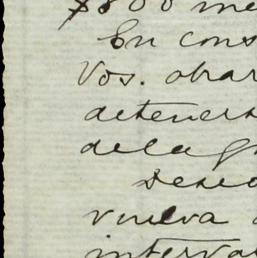 $800 me
En cons
Vos. obrar
deteners
de la g
Deseo
vuelva
interva